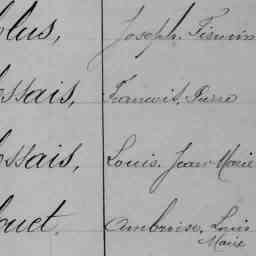 olus, Joseph. Firmin
ossais, Francois. Pierre
ossais, Louis. Jean Marie
ouet. Ambroise. Louis
Marie